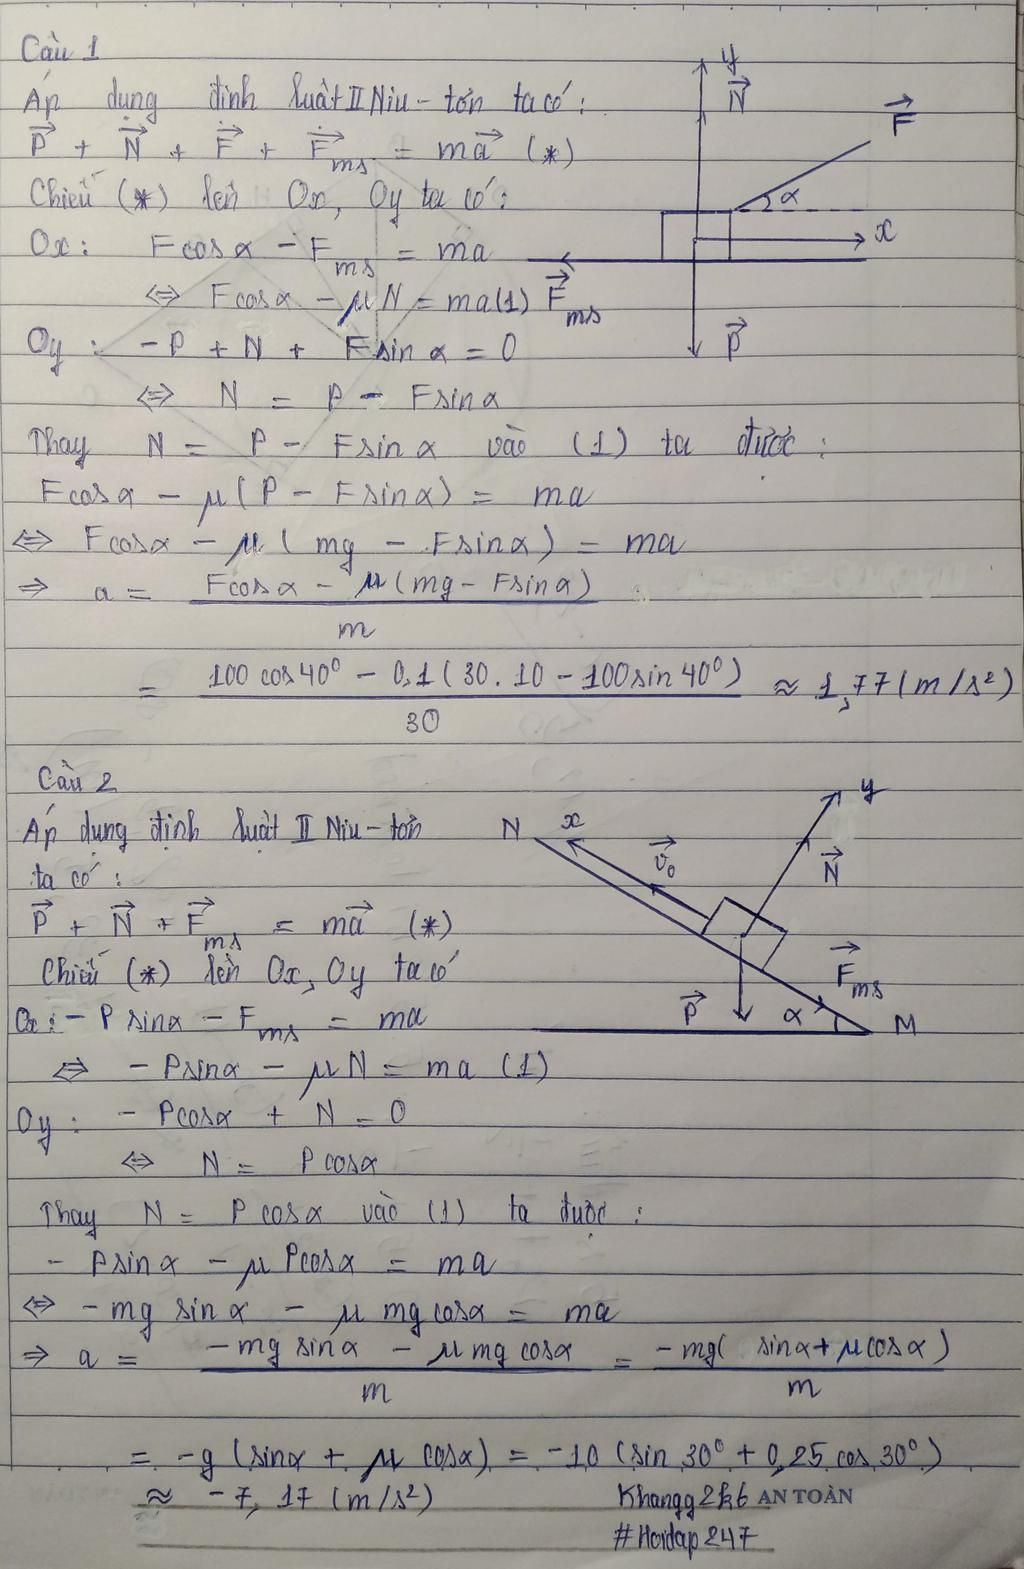 Câu 1
Áp dụng định luật II Niu-tơn ta có:
P⃗ + N⃗ + F⃗ + F⃗ms = ma⃗ (*)
Chiếu (*) lên Ox, Oy ta có:
Ox: Fcosα - Fms = ma
⇔ Fcosα - μN = ma (1)
Oy: -P + N + Fsinα = 0
⇔ N = P - Fsinα
Thay N = P - Fsinα vào (1) ta được:
Fcosα - μ(P - Fsinα) = ma
⇔ Fcosα - μ(mg - Fsinα) = ma
⇒ a = Fcosα - μ(mg - Fsinα)
m
= 100cos40° - 0,1(30.10 - 100sin40°) ≈ 1,77 (m/s²)
30
y
N⃗
F⃗
α
x
F⃗ms
P⃗
Câu 2
Áp dụng định luật II Niu-tơn
ta có:
P⃗ + N⃗ + F⃗ms = ma⃗ (*)
Chiếu (*) lên Ox, Oy ta có
Ox: -Psinα - Fms = ma
⇔ -Psinα - μN = ma (1)
Oy: -Pcosα + N = 0
⇔ N = Pcosα
Thay N = Pcosα vào (1) ta được:
-Psinα - μPcosα = ma
⇔ -mg sinα - μ mg cosα = ma
⇒ a = -mg sinα - μ mg cosα = -mg(sinα + μcosα)
m m
= -g (sinα + μ cosα) = -10 (sin 30° + 0,25 cos 30°)
≈ -7,17 (m/s²)
N
x
v⃗₀
y
N⃗
F⃗ms
P⃗
α
M
Khangg2k6 AN TOÀN
#Hoidap247